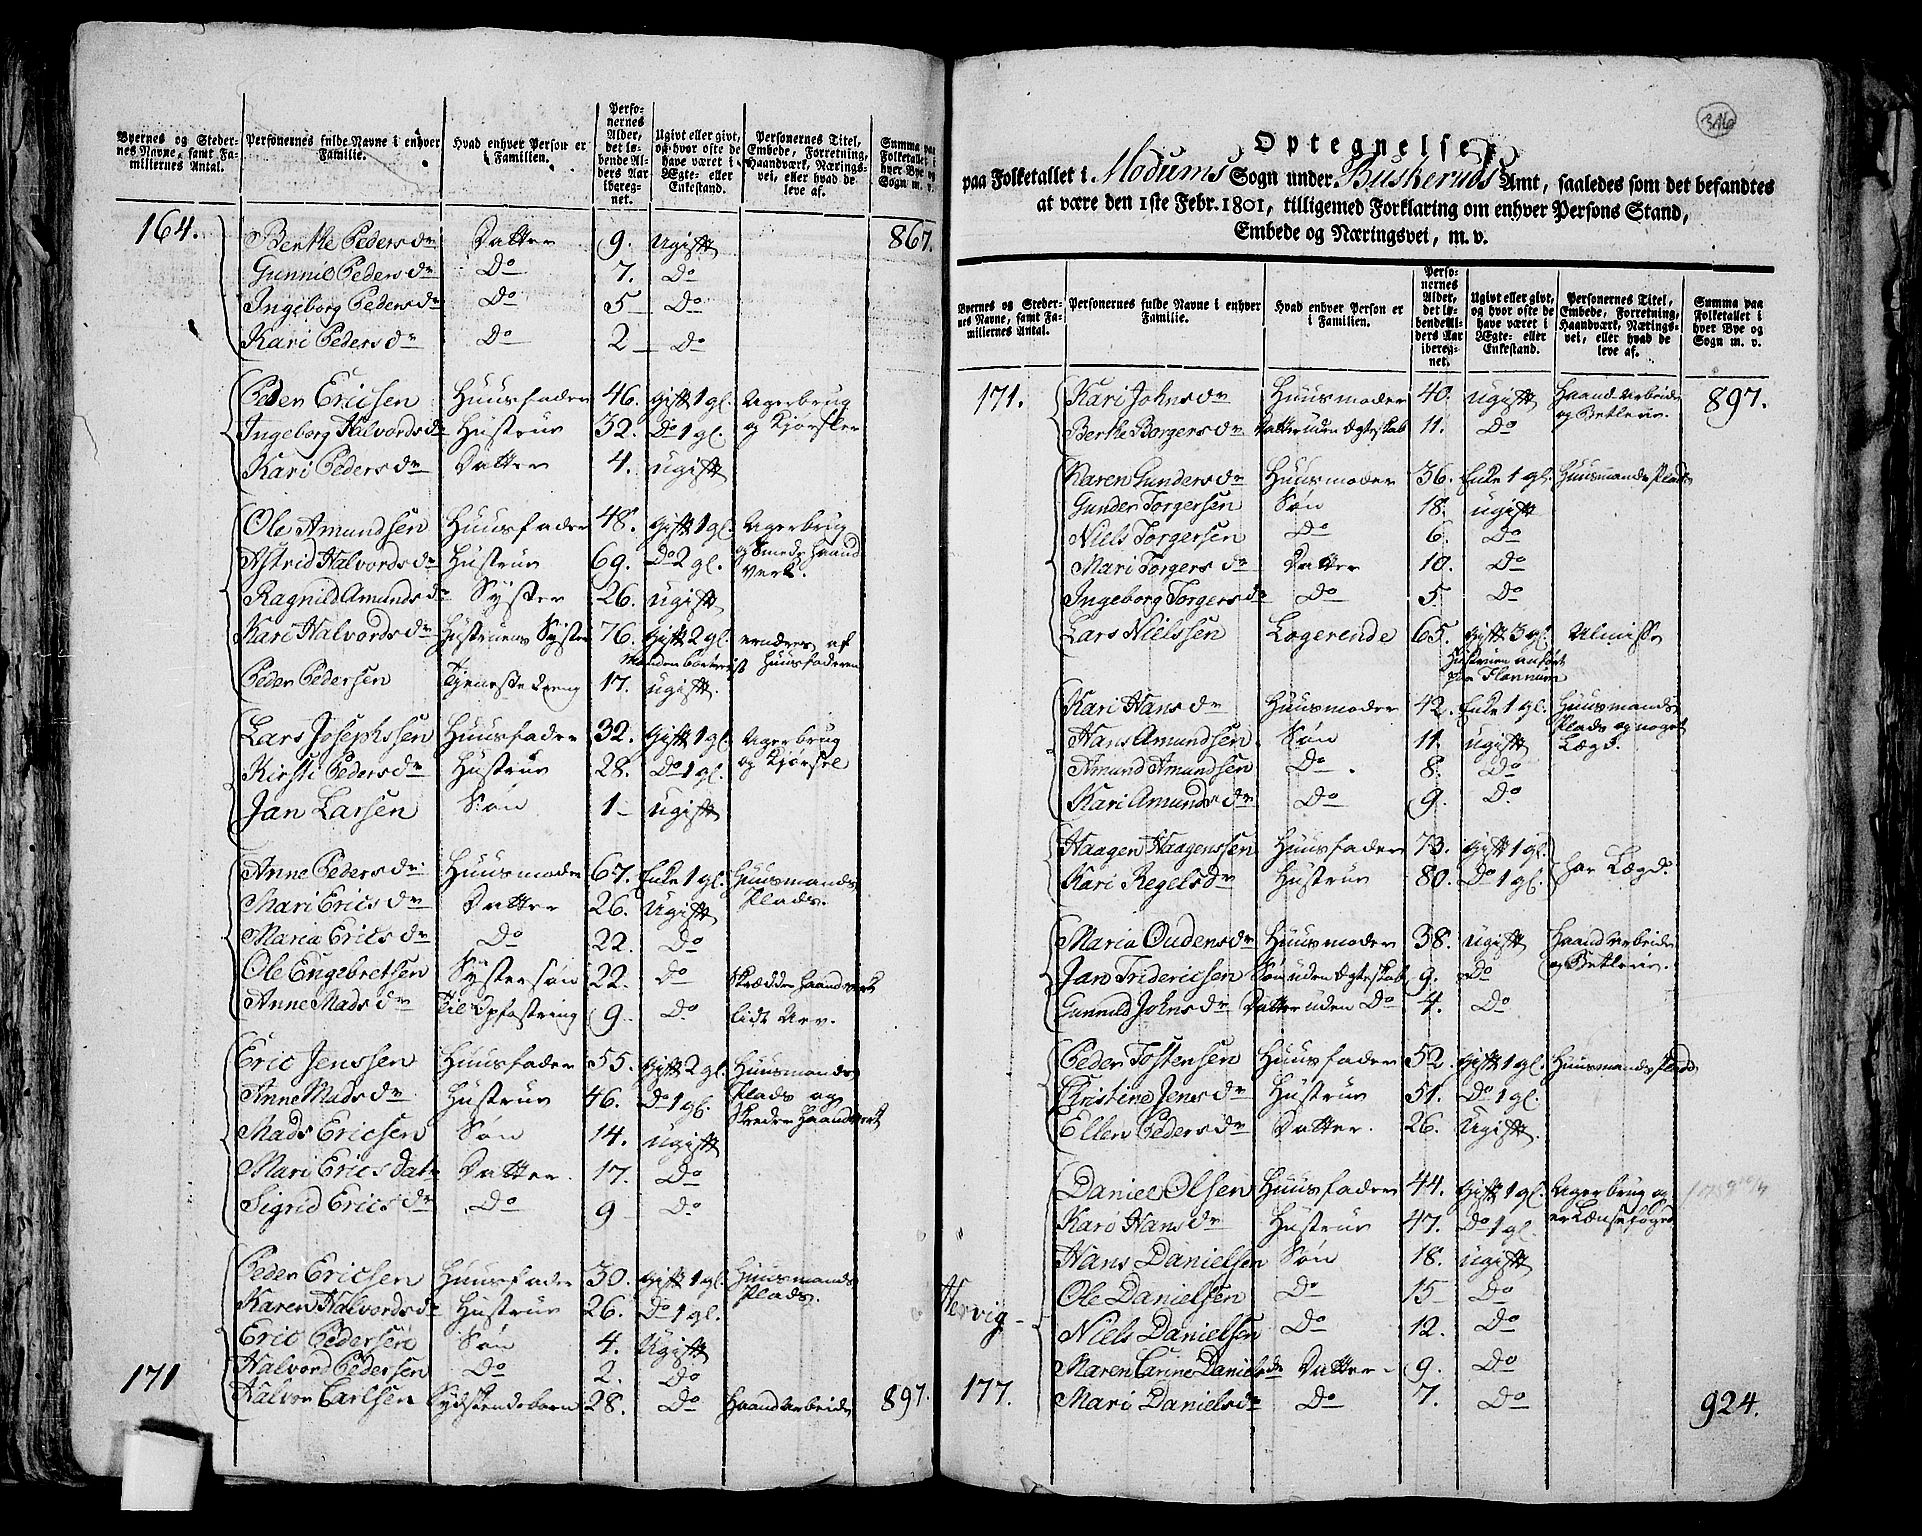 Byernes og Steder-
nes Navne, samt Fa-
milliernes Antal.
Personernes fulde Navne i enhver
Familie.
Hvad enhver Person er
i Familien.
Perso-
nernes
Alder,
det lø-
bende Al-
ders Aar
ibereg-
net.
Ugivt eller givt,
og hvor ofte de
have været i
Ægte- eller
Enkestand.
Personernes Titel,
Embede, Forretning,
Haandværk, Nærings-
vei, eller hvad de
leve af.
Summa paa
Folketallet i
hver Bye og
Sogn m. v.
164. Berthe Pedersdr Datter 9. Ugift 867.
Gunnil Pedersdr Do 7. Do
Ingeborg Pedersdr Do 5 Do
Kari Pedersdr Do 2 Do
Peder Ericsen Huusfader 46. Gift 1 gl. Agerbrug
Ingeborg Halvordsdr Hustrue 32. Do 1 gl. og Kjørsler
Kari Pedersdr Datter 4. ugift
Ole Amundsen Huusfader 48. Gift 1 gl. Agerbrug
Astrid Halvordsdr Hustrue 69. Do 2 gl. og Smede Haand
Verk.
Ragnild Amundsdr Syster 26. ugift
Kari Halvordsdr Hustruens Syster 76. Gift 2 gl. ernæres af
Manden bortreist Huusfaderen
Peder Pedersen Tjenestedreng 17. ugift.
Lars Josephssen Huusfader 32. Gift 1 gl. Agerbrug
Kirsti Pedersdr Hustrue 28. Do 1 gl. og Kjørsel
Jan Larsen Søn 1 ugift
Anne Pedersdr Huusmoder 67. Enke 1 gl. Huusmands
Mari Ericsdr Datter 26. Ugift Plads.
Maria Ericsdr Do 22. Do
Ole Engebretsen Systersøn 22. Do Skrædder Haandverk
Anne Madsdr Til Opfostring 9 Do lidt Arv.
Eric Jenssen Huusfader 55. Gift 2 gl. Huusmands
Anne Madsdr Hustrue 46. Do 1 gl. Plads og
Mads Ericsen Søn 14. ugift Skreder Haandverk
Mari Ericsdatr Datter 17. Do
Sigrid Ericsdr Do 9 Do
Peder Ericsen Huusfader 30. Gift 1 gl. Huusmands
Karen Halvordsdr Hustrue 26. Do 1 gl. Plads.
Eric Pedersen Søn 4. Ugift
171 Halvord Pedersen Do 2. Do
Halvor Carlsen Sydskendebarn 28. Do Haandarbeide 897.
Optegnelse
paa Folketallet i Modums Sogn under Buskeruds Amt, saaledes som det befandtes
at være den 1ste Febr. 1801, tilligemed Forklaring om enhver Persons Stand,
Embede og Næringsvei, m. v.
Byernes og Steder-
nes Navne, samt Fa-
milliernes Antal.
Personernes fulde Navne i enhver
Familie.
Hvad enhver Person er
i Familien.
Perso-
nernes
Alder,
det lø-
bende Al-
ders Aar
ibereg-
net.
Ugivt eller givt,
og hvor ofte de
have været i
Ægte- eller
Enkestand.
Personernes Titel,
Embede, Forretning,
Haandværk, Nærings-
vei, eller hvad de
leve af.
Summa paa
Folketallet i
hver Bye og
Sogn m. v.
171. Kari Johnsdr Huusmoder 40. ugift Haandarbeide 897.
og Betlerie.
Berthe Borgersdr Datter uden Ægteskab 11. Do
Karen Gundersdr Huusmoder 36. Enke 1 gl. Huusmands Plads
Gunder Torgersen Søn 18. ugift
Niels Torgersen Do 6. Do
Mari Torgersdr Datter 10. Do
Ingeborg Torgersdr Do 5. Do
Lars Nielssen Logerende 65. Gift 3 gl. Almisse
Hustruen anført
paa
Kari Hansdr Huusmoder 42. Enke 1 gl. Huusmands
Hans Amundsen Søn 11. ugift Plads og noget
Lægd.
Amund Amundsen Do 8. Do
Kari Amundsdr Do 9. Do
Haagen Haagenssen Huusfader 73. Gift 1 gl. har Lægd.
Kari Regelsdr Hustrue 80. Do 1 gl.
Maria Oudensdr Huusmoder 38. ugift Haandarbeide
Jan Fridericsen Søn uden Ægteskab 9. Do og Betlerie.
Gunnild Johnsdr Datter uden Do 4. Do
Peder Tostensen Huusfader 52. Gift 1 gl. Huusmands Plads
Christine Jensdr Hustrue 51. Do 1 gl.
Ellen Pedersdr Datter. 26. Ugift.
Daniel Olsen Huusfader 44. Gift 1 gl. Agerbrug og
Kari Hansdr Hustrue 47. Do 1 gl. er Lænsefoged
Hans Danielsen Søn 18. ugift
Ole Danielsen Do 15 Do
Hervig Niels Danielsen Do 12. Do
Maren Carine Danielsdr Datter 9. Do
177. Mari Danielsdr Do 7. Do
924.